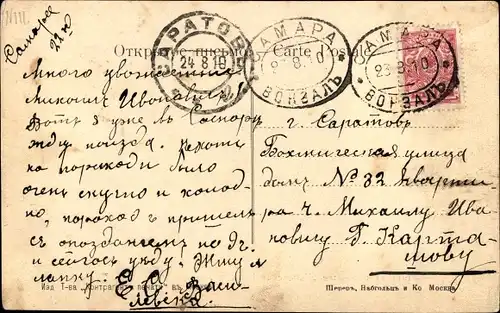 Самара
Открытое письмо. — Carte Postale.
САРАТОВЪ
24 8 10
САМАРА
ВОКЗАЛЪ
САМАРА
23 8 10
ВОКЗАЛЪ
Много уважаемый
Михаилъ Ивановичъ!
Вотъ я уже въ Самарѣ
жду поѣзда. Ѣхать
на пароходѣ было
очень скучно и холод-
но, пароходъ пришелъ
съ опозданіемъ на
и сейчасъ уѣду. Жму
лапку.
г. Саратовъ
улица
домъ № 32 кварти
ра ч. Михаилу Ива
новичу Г. Карта
шову
Изд. Т-ва „Контрагент печати“ въ
Шереръ, Набгольцъ и Ко Москва